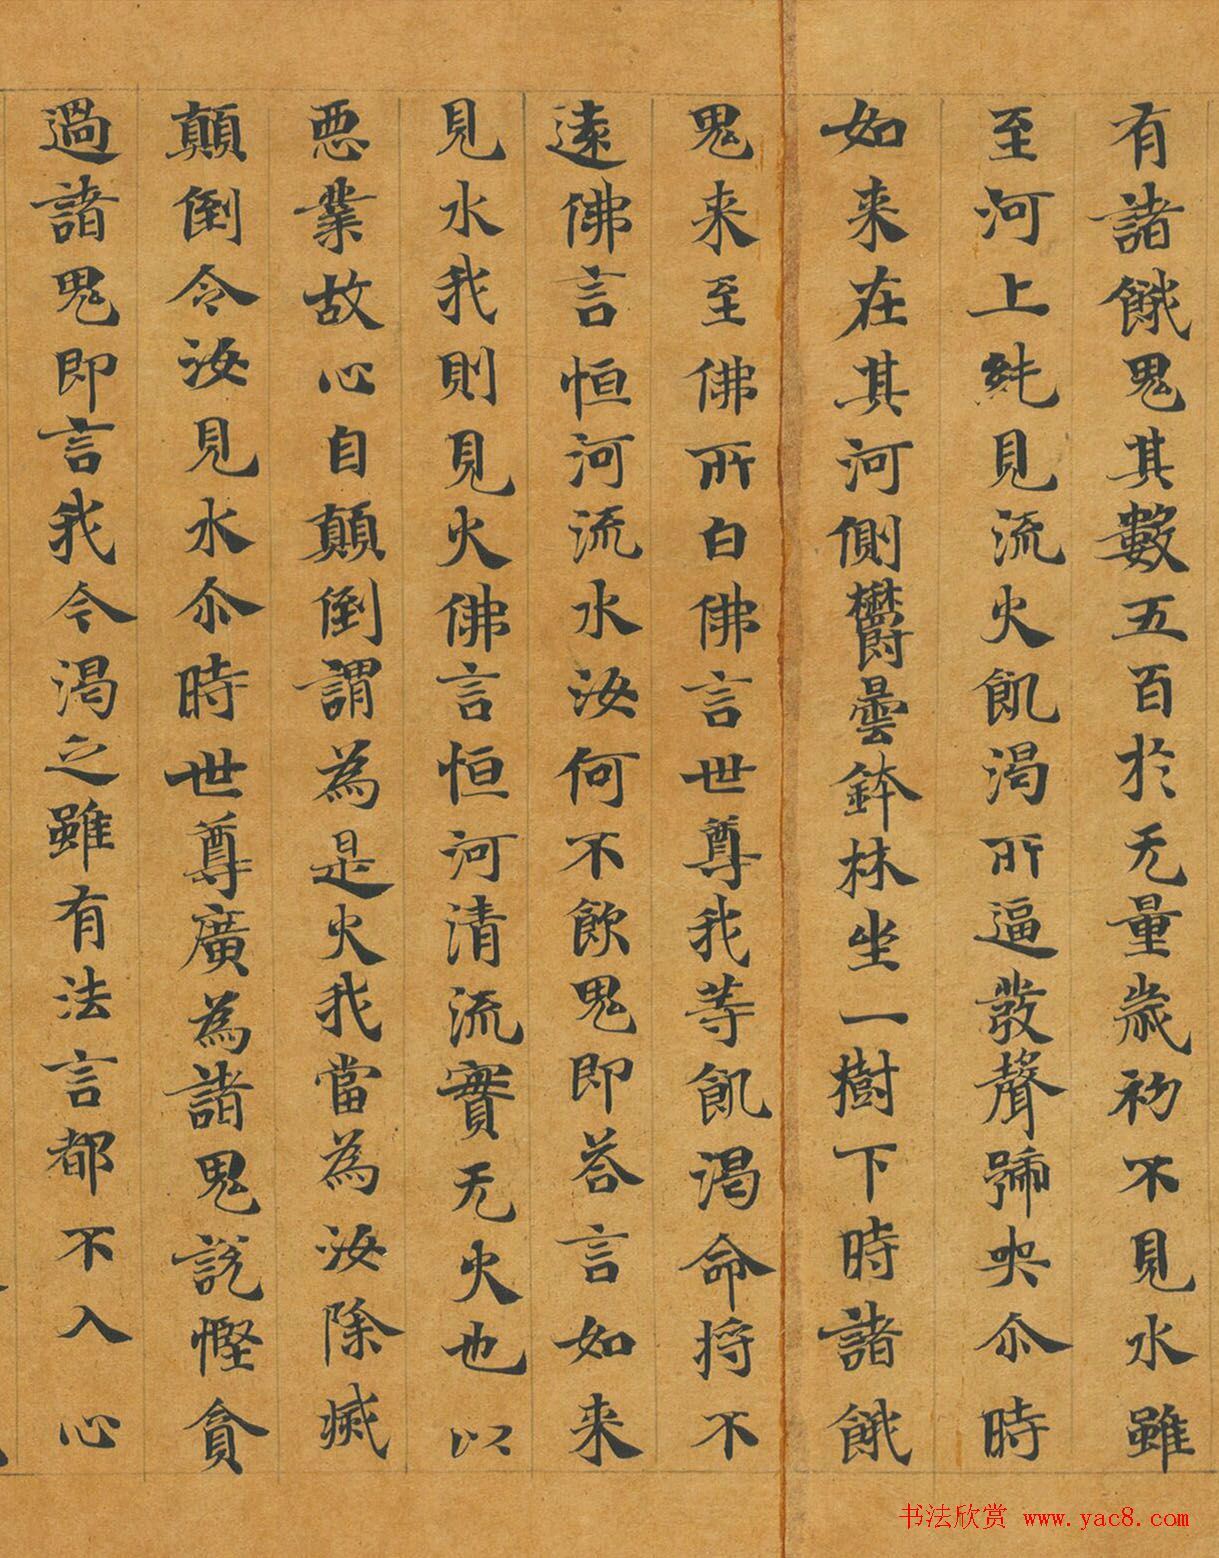 有諸餓鬼其數五百於无量歲初不見水雖
至河上純見流火飢渴所逼發聲號哭尒時
如来在其河側欝曇鉢林坐一樹下時諸餓
鬼来至佛所白佛言世尊我等飢渴命将不
遠佛言恒河流水汝何不飲鬼即荅言如来
見水我則見火佛言恒河清流實无火也以
悪業故心自顛倒謂為是火我當為汝除滅
顛倒令汝見水尒時世尊廣為諸鬼說慳貪
過諸鬼即言我今渴乏雖有法言都不入心
书法欣赏 www.yac8.com